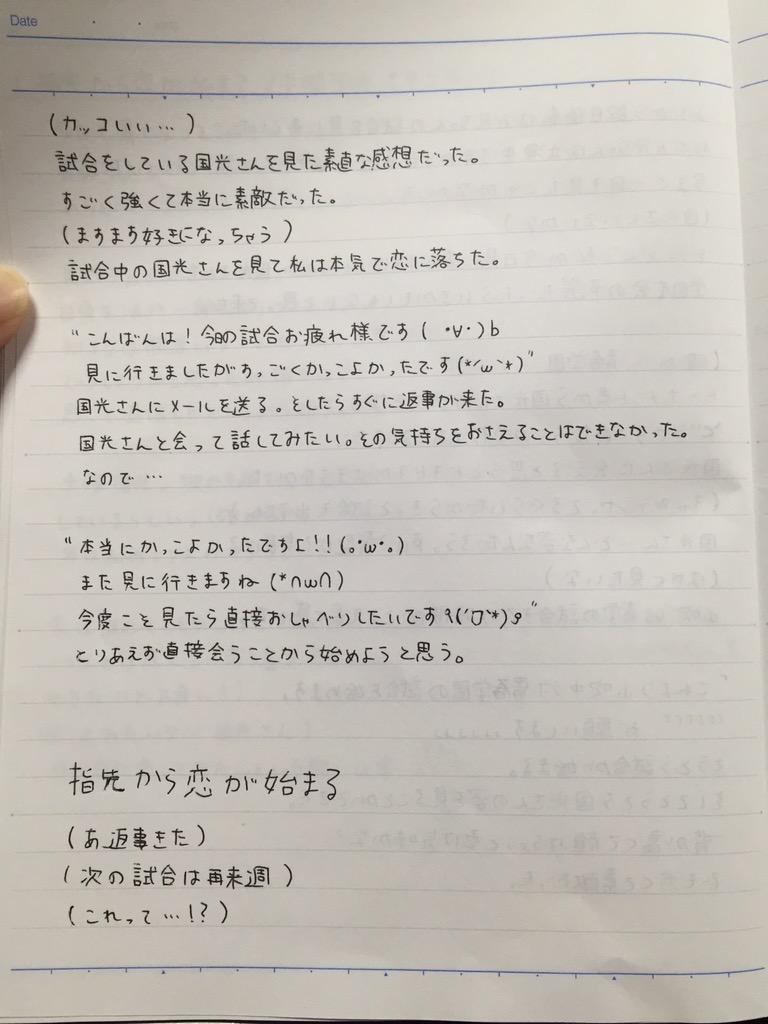 Date
(カッコいい…)
試合をしている国光さんを見た素直な感想だった。
すごく強くて本当に素敵だった。
(ますます好きになっちゃう)
試合中の国光さんを見て私は本気で恋に落ちた。
“こんばんは!今日の試合お疲れ様です( ・∀・)b
見に行きましたがすっごくかっこよかったです(*´ω`*)”
国光さんにメールを送る。そしたらすぐに返事が来た。
国光さんと会って話してみたい。その気持ちをおさえることはできなかった。
なので…
“本当にかっこよかったですよ!!(。・ω・。)
また見に行きますね(*∩ω∩)
今度こそ見たら直接おしゃべりしたいです٩(ˊᗜˋ*)و”
とりあえず直接会うことから始めようと思う。
指先から恋が始まる
(あ、返事きた)
(次の試合は再来週)
(これって…!?)